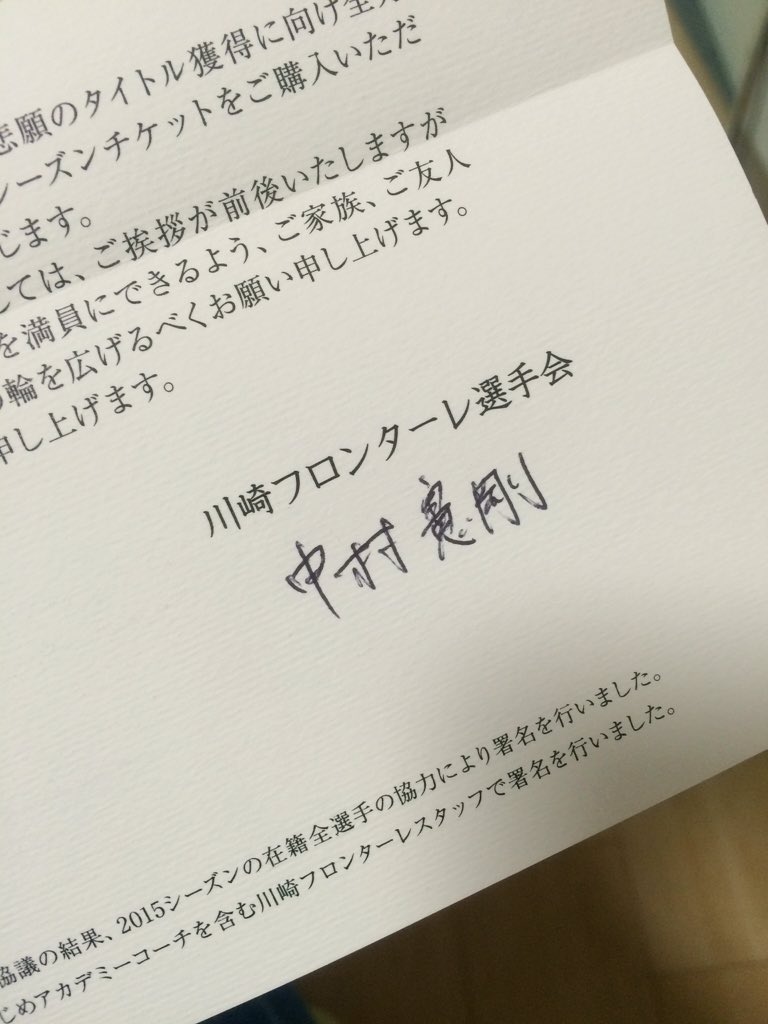 悲願のタイトル獲得に向け全
シーズンチケットをご購入いただ
じます。
しては、ご挨拶が前後いたしますが
を満員にできるよう、ご家族、ご友人
輪を広げるべくお願い申し上げます。
申し上げます。
川崎フロンターレ選手会
中村憲剛
協議の結果、2015シーズンの在籍全選手の協力により署名を行いました。
じめアカデミーコーチを含む川崎フロンターレスタッフで署名を行いました。